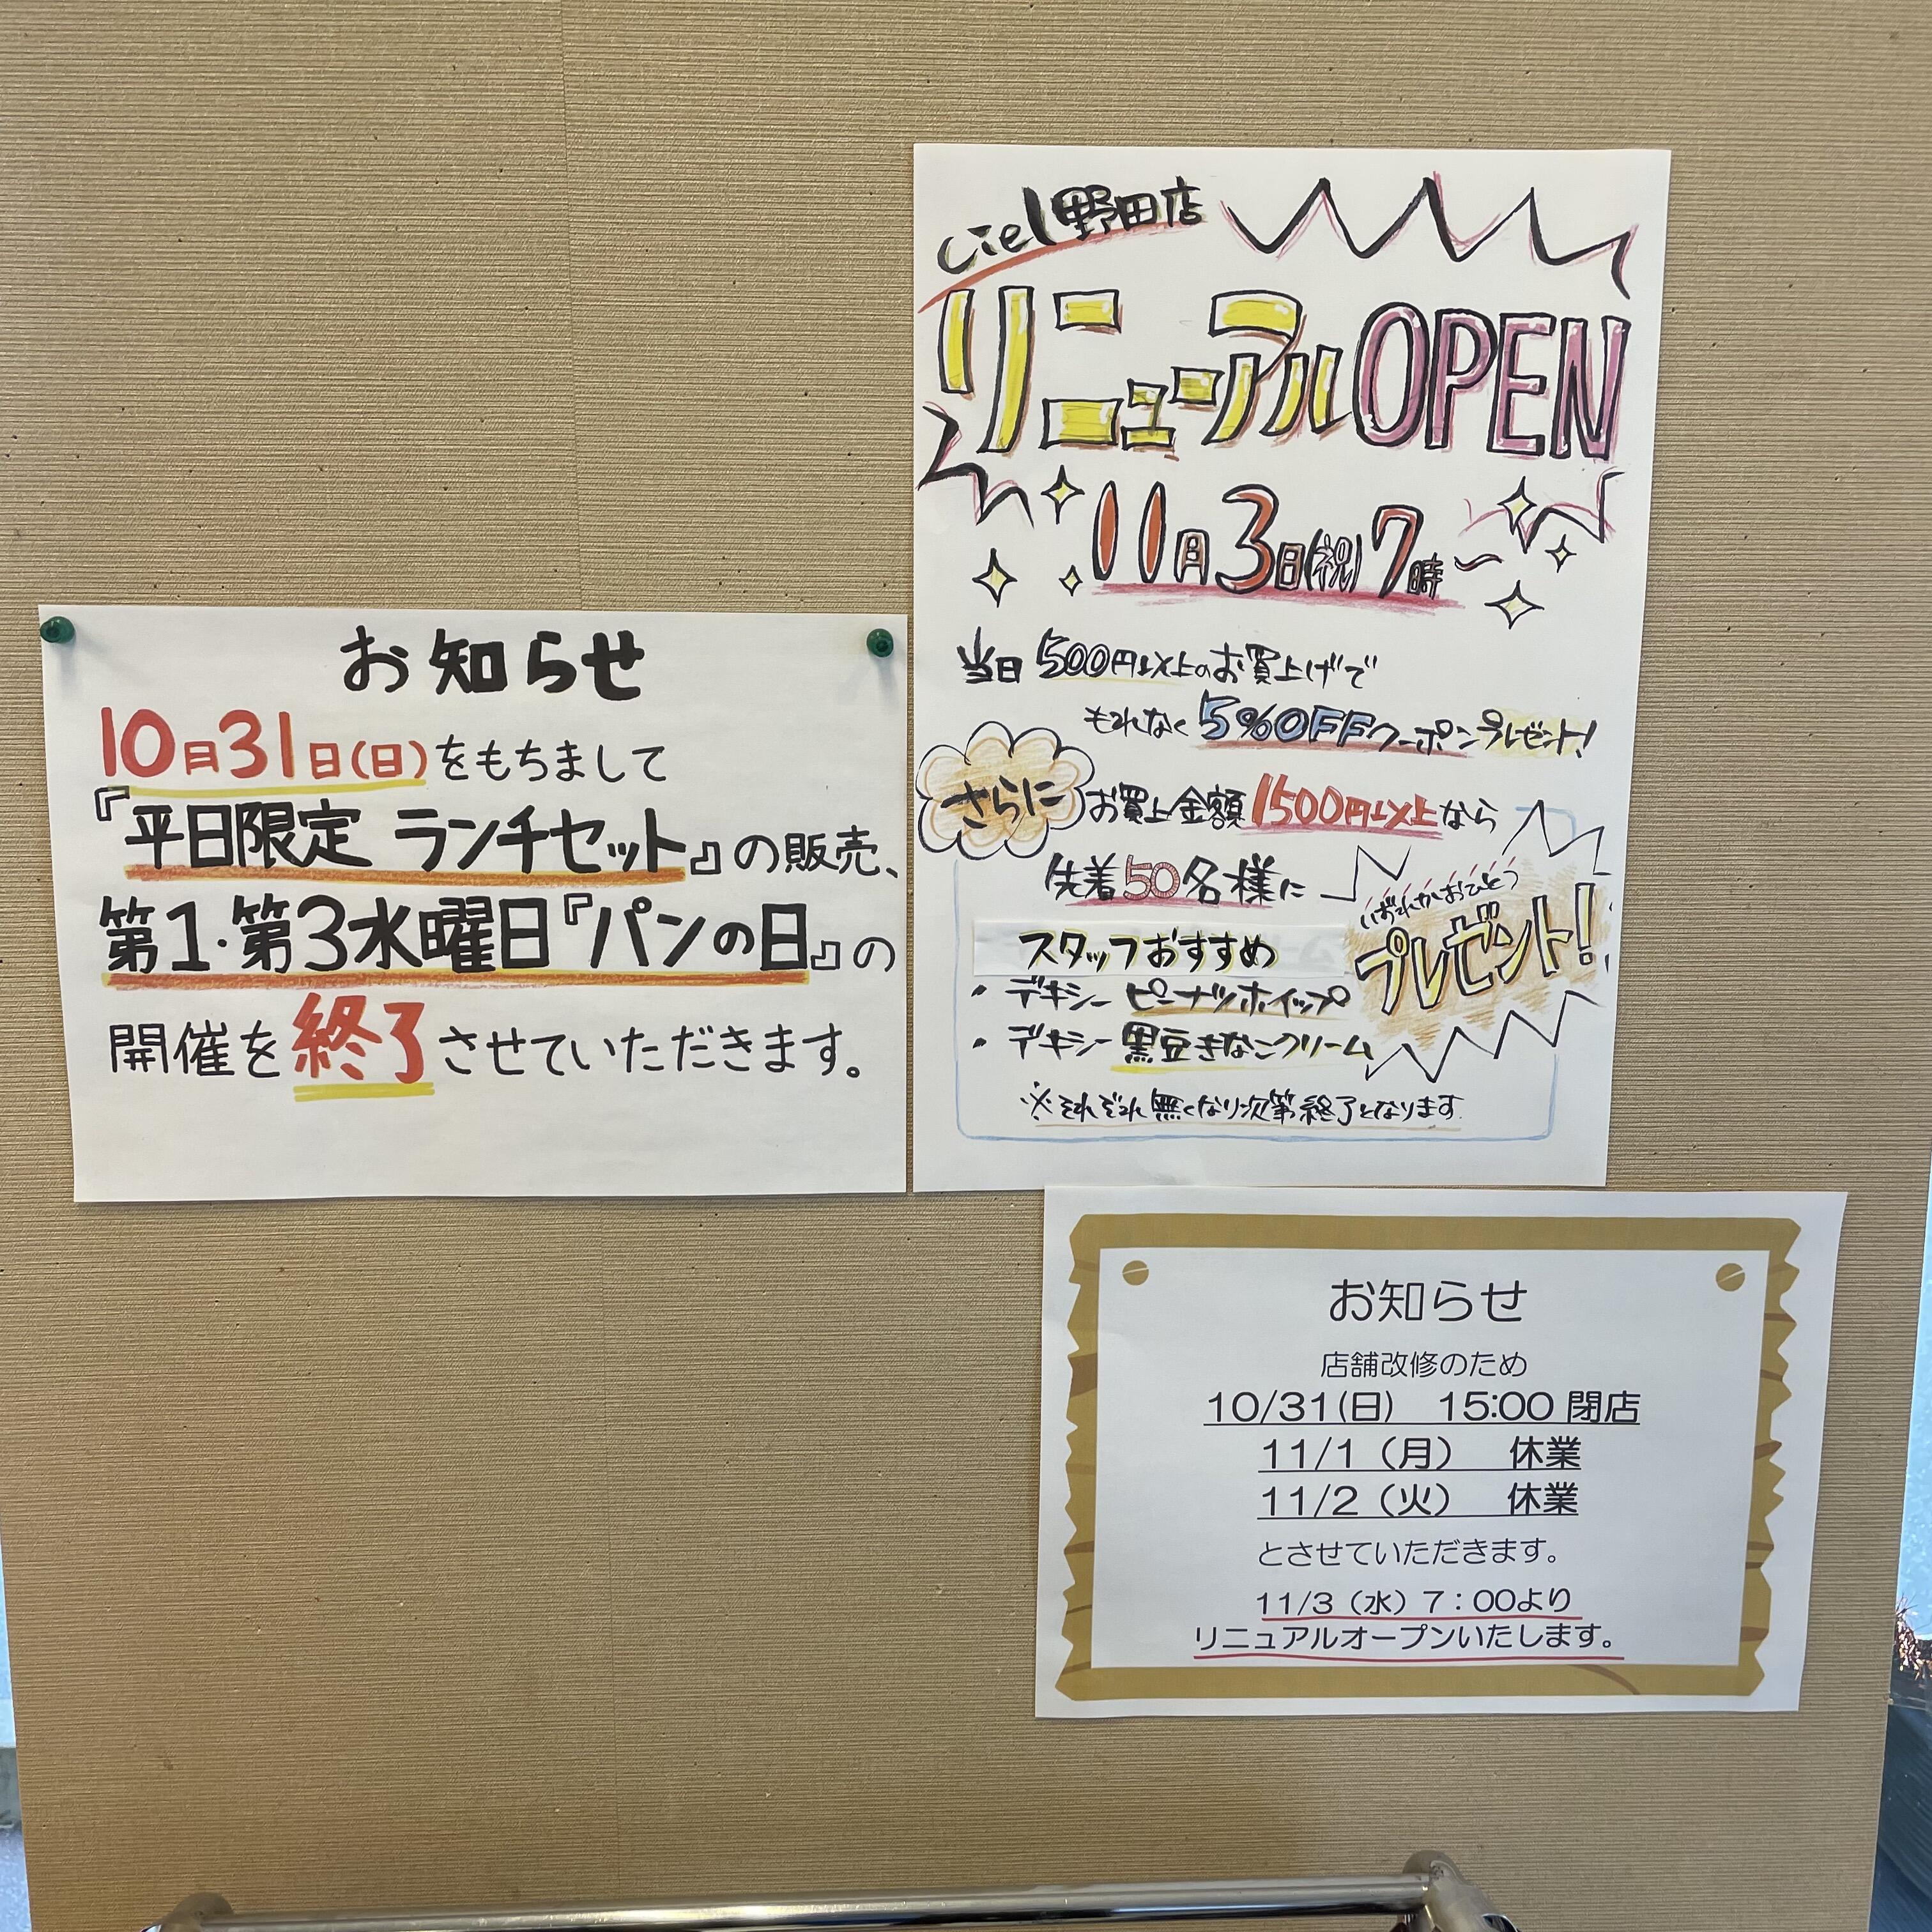 お知らせ
10月31日(日)をもちまして
『平日限定 ランチセット』の販売、
第1・第3水曜日『パンの日』の
開催を終了させていただきます。
ciel野田店
リニューアルOPEN
11月3日(祝)7時〜
当日500円以上のお買上げで
もれなく5%OFFクーポンプレゼント!
さらに
お買上金額1500円以上なら
先着50名様に
いずれかおひとつ
プレゼント!
スタッフおすすめ
・デキシーピーナツホイップ
・デキシー黒豆きなこクリーム
※それぞれ無くなり次第終了となります
お知らせ
店舗改修のため
10/31(日) 15:00 閉店
11/1（月） 休業
11/2（火） 休業
とさせていただきます。
11/3（水）7：00より
リニュアルオープンいたします。